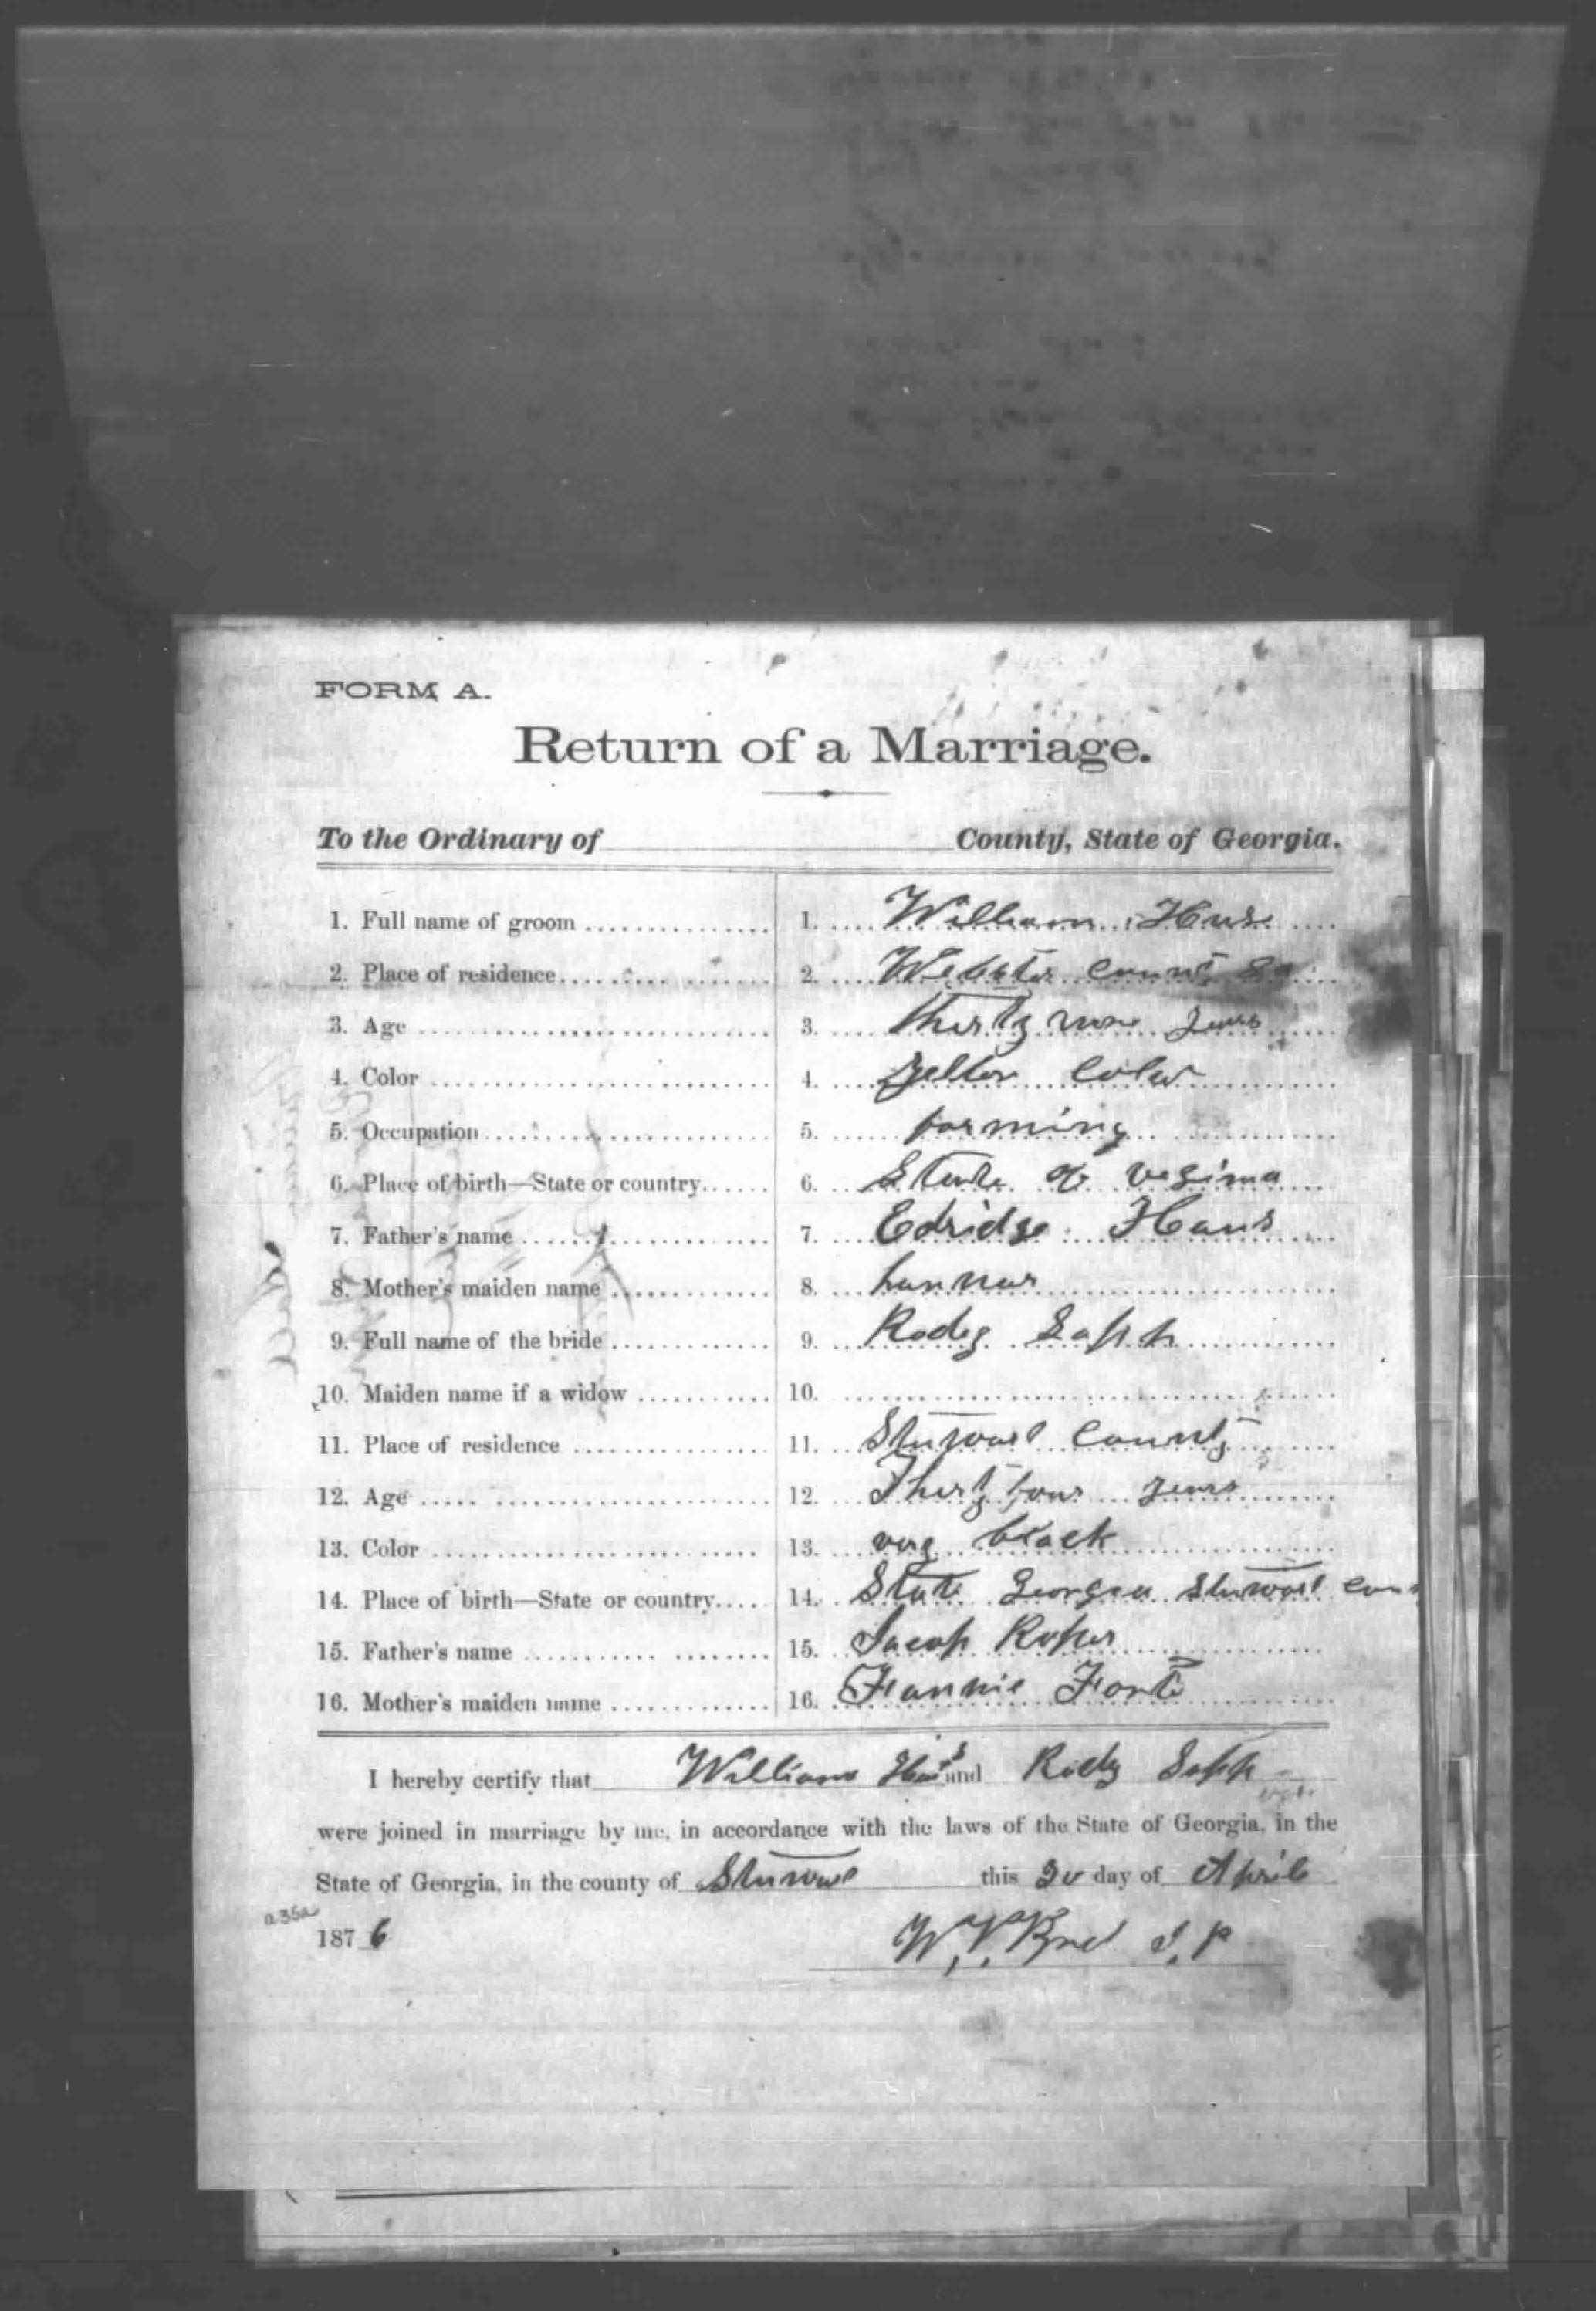 FORM A.
Return of a Marriage.
To the Ordinary of County, State of Georgia.
1. Full name of groom 1. William
2. Place of residence 2. Webster Count Ga
3. Age 3. thirty years
4. Color 4. yellor Color
5. Occupation 5. farming
6. Place of birth—State or country 6. State of
7. Father's name 7. Edridge Haus
8. Mother's maiden name 8. hannar
9. Full name of the bride 9. Rody Sapp
10. Maiden name if a widow 10.
11. Place of residence 11. Stuwart County
12. Age 12. Thirty four years
13. Color 13. very black
14. Place of birth—State or country 14. State Georgia Stuwart
15. Father's name 15. Jacob Roper
16. Mother's maiden name 16. Fannie Fort
I hereby certify that William and Rody Sapp
were joined in marriage by me, in accordance with the laws of the State of Georgia, in the
State of Georgia, in the county of this 20 day of April
a35a
1876
J. P